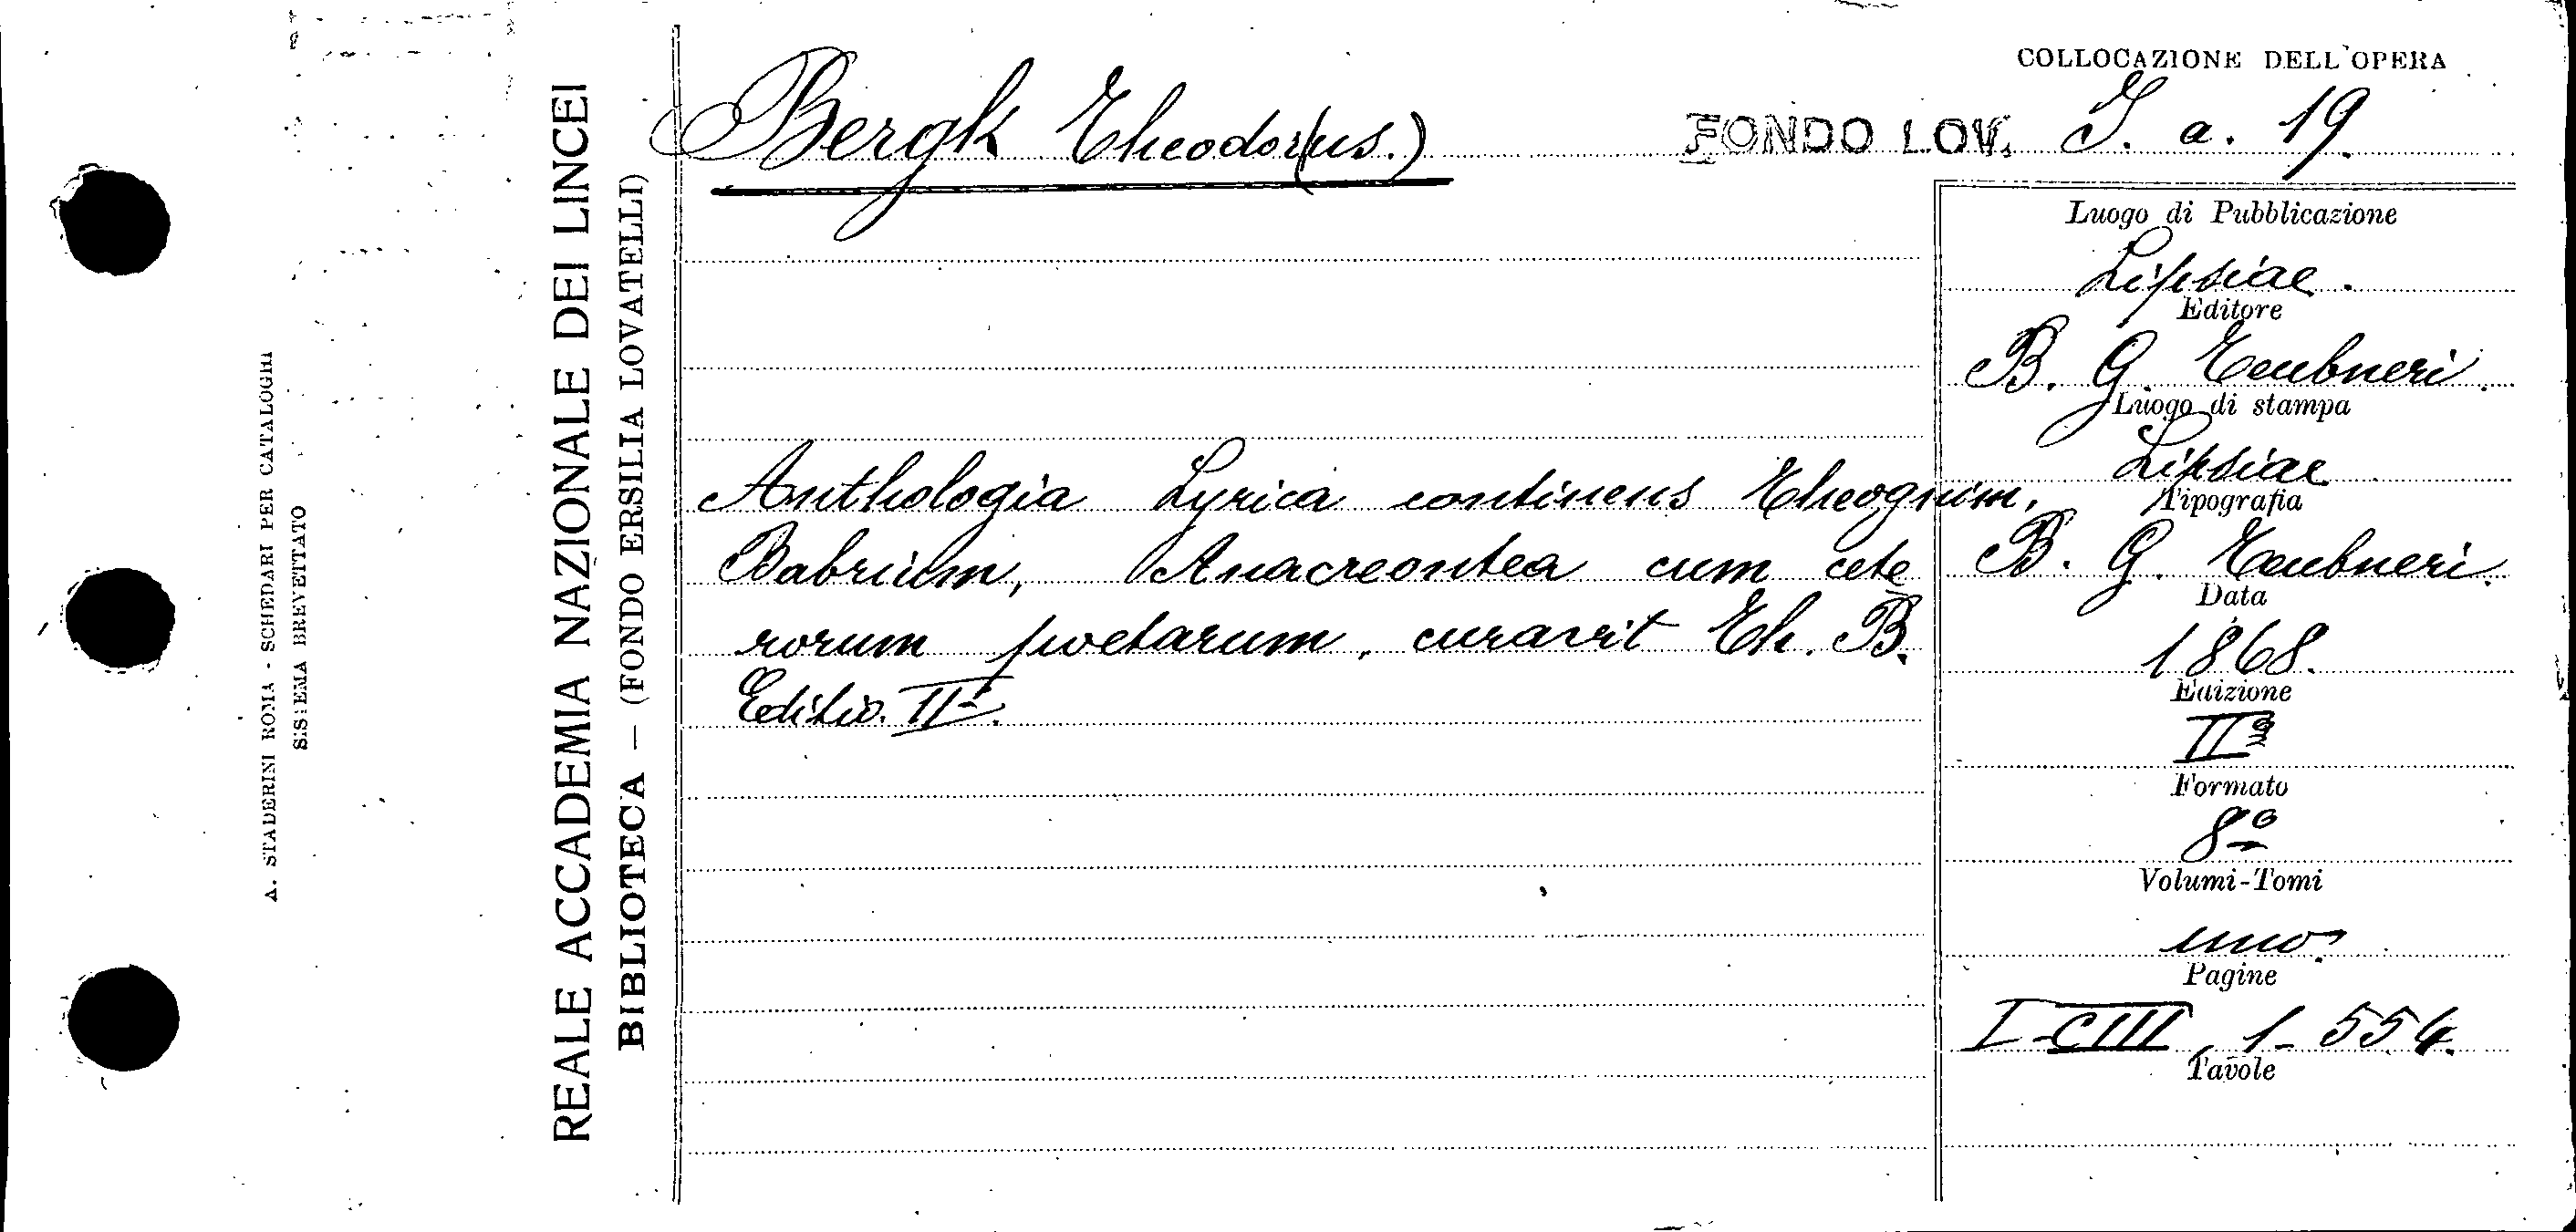 COLLOCAZIONE DELL'OPERA
Bergk Theodor(us.)
FONDO LOV. I. a. 19.
REALE ACCADEMIA NAZIONALE DEI LINCEI
BIBLIOTECA — (FONDO ERSILIA LOVATELLI)
A. STADERINI ROMA - SCHEDARI PER CATALOGHI
SISTEMA BREVETTATO
Anthologia Lyrica continens Theognim,
Babrium, Anacreontea cum cete
rorum poetarum, curavit Th. B.
Editio. IIª.
Luogo di Pubblicazione
Lipsiae.
Editore
B. G. Teubneri.
Luogo di stampa
Lipsiae
Tipografia
B. G. Teubneri.
Data
1868.
Edizione
IIª
Formato
8º
Volumi-Tomi
uno.
Pagine
I-CIII, 1-554.
Tavole